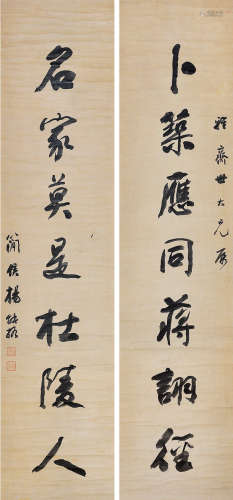 齋世大兄屬
卜築應同蔣詡徑
名家莫是杜陵人
簡侯楊能格